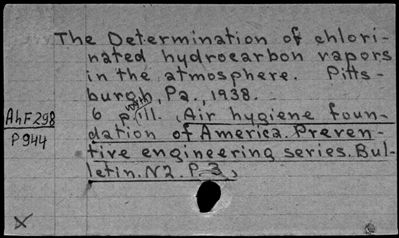 The Determination of chlori-
nated hydrocarbon vapors
in the atmosphere. Pitts-
burgh, Pa., 1938.
6 p. ill. (Air hygiene foun-
dation of America. Preven-
tive engineering series. Bul-
letin. N2. P. 3)
AhF298
P944